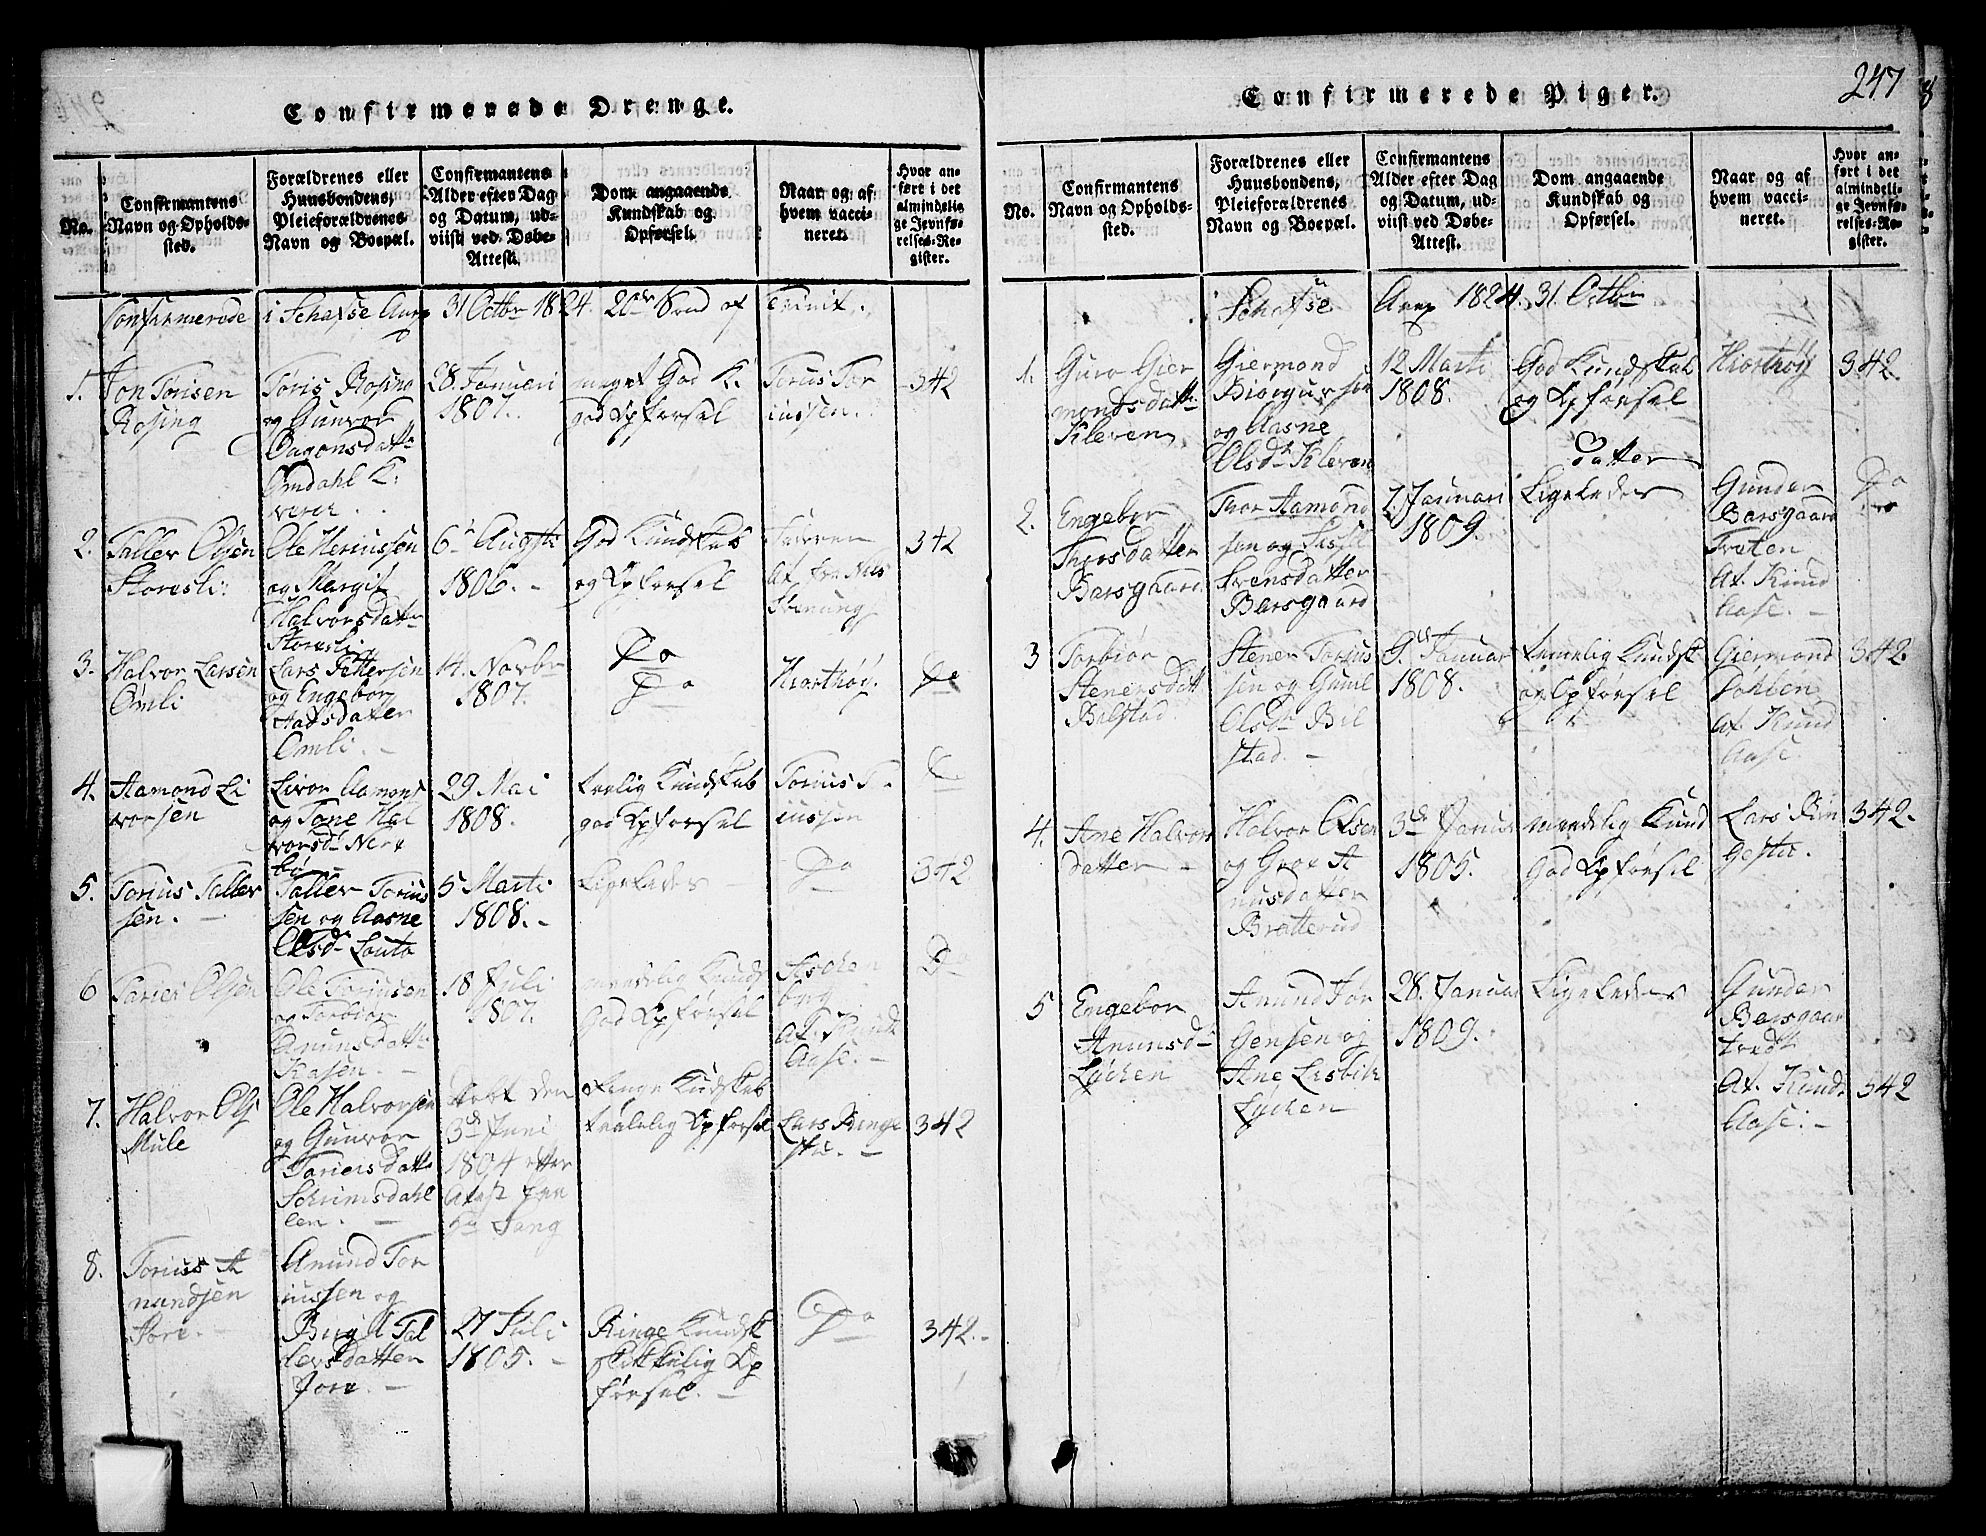 247
Confirmerede Drenge.
No.
Confirmantens Navn og Opholds-sted.
Forældrenes eller Huusbondens, Pleieforældrenes Navn og Boepæl.
Confirmantens Alder efter Dag og Datum, ud-viist ved Døbe-Attest.
Dom angaaende Kundskab og Opførsel.
Naar og af hvem vacci-neret.
Hvor an-ført i det almindelig-ge Jevnfø-relses-Re-gister.
Confirmerede i Schafse Anex 31 Octbr 1824. 20de Sønd. af Trinit.
1. Jon Torisen
Rosing
Toris Rosing
og Gunvor
Dagonsdatt
Omdahl K.
28. Januari
1807.
meget God K.
god Opførsel
Torius Tor
iussen.
342
2. Taller Olsen
Storesli
Ole Heriussen
og Margit
Halvorsdatter
Storesli
6te Augsti
1806. -
God Kundskab
og Opførsel
af
342
3. Halvor Larsen
Omli
Lars Pettersen
og Engebor
Omli. -
14. Novbr
1807.
Do
Do
Hiorthøy.
Do
4. Aamond Li
vorsen
Livor Aamons
og Tone Hal
vorsd.
bø
29 Mai
1808.
god Opførsel
Torius T.
iussen
5. Torius Taller
sen. -
Taller Torius
sen og Aasne
Olsd. Louto
5 Marti
1808. -
Ligeledes
Do
342
6 Tarier Olsen
Ole Toriussen
og Torbior
Anunsdatt
Rasen. -
18 Juli
1807.
maadelig Kunds
God Opførsel
af Knud
Aase. -
Do
7. Halvor Ols
Mule
Ole Halvorsen
og Gunvor
Tariersdatt
3de Juni
1804 efter
ringe Kundskab
Opførsel
Lars Ringe
stu. -
342
8. Torius A
nundsen
Jore. -
Anund Tor
iussen og
Birgit Tal
lersdatter
Jore. -
27 Juli
1805. -
Ringe Kundsk
Op
førsel. -
Do
342. -
Confirmerede Piger.
No.
Confirmantens Navn og Opholds-sted.
Forældrenes eller Huusbondens, Pleieforældrenes Navn og Boepæl.
Confirmantens Alder efter Dag og Datum, ud-viist ved Døbe-Attest.
Dom angaaende Kundskab og Opførsel.
Naar og af hvem vacci-neret.
Hvor an-ført i det almindeli-ge Jevnfø-relses-Re-gister.
i Schafse Anex 1824. 31. Octbr
1. Guro Gier
mondsdatt
Kleven
Giermond
og Aasne
Olsd. Kleven
12 Marti
1808.
God Kundskab
og Opførsel
datter
Hiorthøy
342.
2. Engebor
Thorsdatter
Barsgaard
Thor Aamond
sen og Sissel
Svensdatter
Barsgaard
7. Januari
1809.
Ligeledes
Gunder
Barsgaard
Af Knud
Aase. -
Do
3 Torbiør
Stenersdatt
Bilstad
Stener Torius
sen og Gunil
Olsdr Bil
stad. -
9de Januar
1808.
Kundsk
og Opførsel
Giermond
af Knud
Aase.
342
4. Ane Halvors
datter -
Halvor Olsen
og Groe A
nunsdatter
Bratterud
3de Januar
1805.
maadelig Kund
God Opførsel
Lars Rin
gestu.
342.
5 Engebor
Anunsd
Lychen
Anund Jør
gensen og
Ane Lisbeth
Lychen
28. Januar
1809.
Ligeledes
Gunder
Barsgaar
Af Knud
Aase. -
342